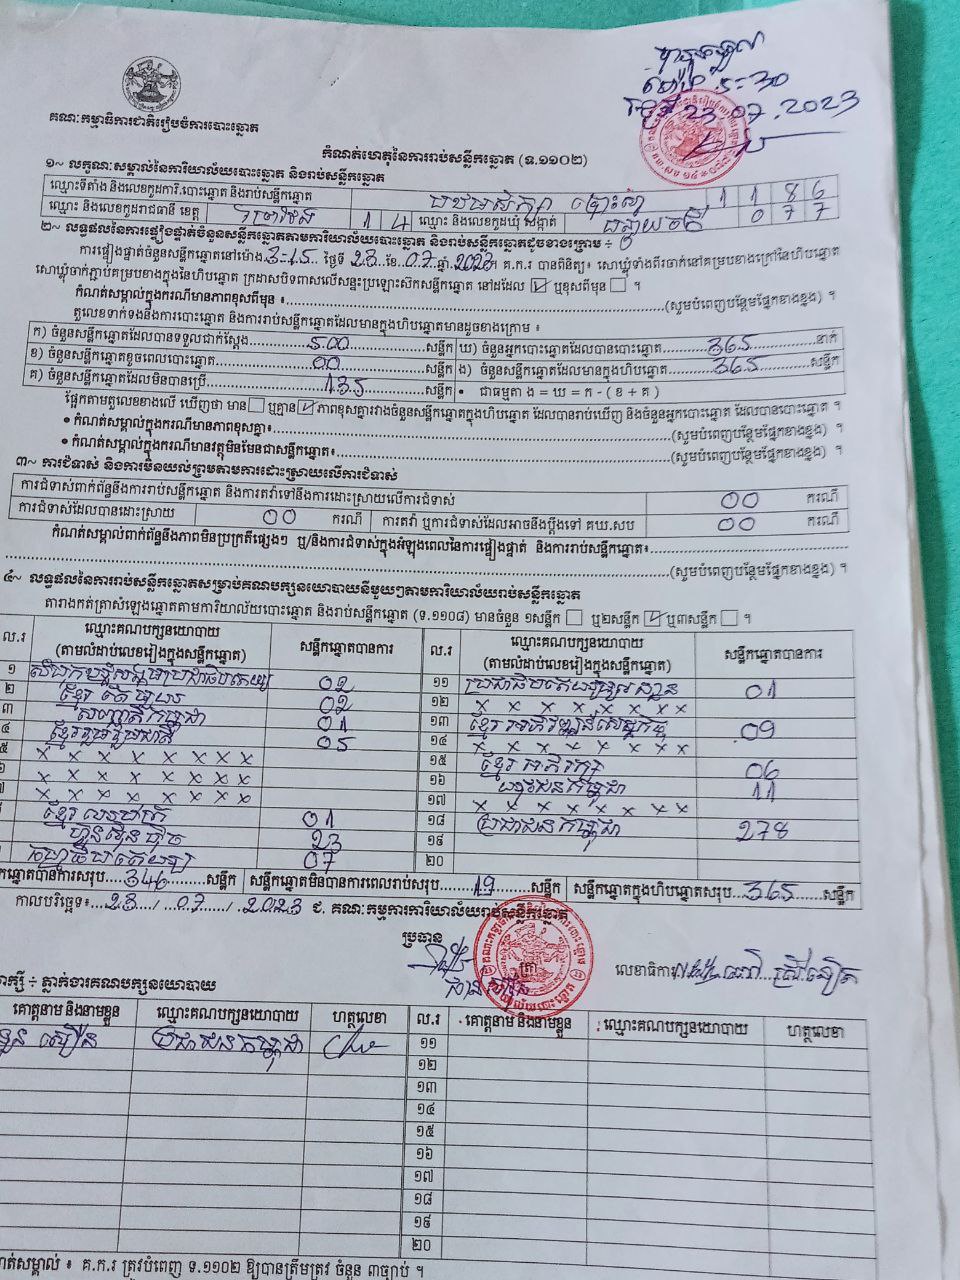 ៥-30
23.07.2023
គណៈកម្មាធិការជាតិរៀបចំការបោះឆ្នោត
កំណត់ហេតុនៃការរាប់សន្លឹកឆ្នោត (ទ.១១០២)
១~ លក្ខណៈសម្គាល់នៃការិយាល័យបោះឆ្នោត និងរាប់សន្លឹកឆ្នោត
ឈ្មោះទីតាំង និងលេខកូដការិ.បោះឆ្នោត និងរាប់សន្លឹកឆ្នោត បឋមសិក្សា 1 1 8 6
ឈ្មោះ និងលេខកូដរាជធានី ខេត្ត ព្រៃវែង 1 4 ឈ្មោះ និងលេខកូដឃុំ សង្កាត់ 0 7 7
២~ លទ្ធផលនៃការផ្ទៀងផ្ទាត់ចំនួនសន្លឹកឆ្នោតតាមការិយាល័យបោះឆ្នោត និងរាប់សន្លឹកឆ្នោតដូចខាងក្រោម ÷
ការផ្ទៀងផ្ទាត់ចំនួនសន្លឹកឆ្នោតនៅម៉ោង 3:15 ថ្ងៃទី 23 ខែ 07 ឆ្នាំ 2023។ គ.ក.រ បានពិនិត្យ៖ សោឃ្លុំទាំងពីរចាក់នៅគម្របខាងក្រៅនៃហិបឆ្នោត
សោឃ្លុំចាក់ភ្ជាប់គម្របខាងក្នុងនៃហិបឆ្នោត ក្រដាសបិទពាសលើសន្ទះប្រឡោះស៊កសន្លឹកឆ្នោត នៅដដែល ☑ ឬខុសពីមុន ☐ ។
កំណត់សម្គាល់ក្នុងករណីមានភាពខុសពីមុន ៖ (សូមបំពេញបន្ថែមផ្នែកខាងខ្នង) ។
តួលេខទាក់ទងនឹងការបោះឆ្នោត និងការរាប់សន្លឹកឆ្នោតដែលមានក្នុងហិបឆ្នោតមានដូចខាងក្រោម ៖
ក) ចំនួនសន្លឹកឆ្នោតដែលបានទទួលជាក់ស្តែង 500 សន្លឹក ឃ) ចំនួនអ្នកបោះឆ្នោតដែលបានបោះឆ្នោត 365 នាក់
ខ) ចំនួនសន្លឹកឆ្នោតខូចពេលបោះឆ្នោត 00 សន្លឹក ង) ចំនួនសន្លឹកឆ្នោតដែលមានក្នុងហិបឆ្នោត 365 សន្លឹក
គ) ចំនួនសន្លឹកឆ្នោតដែលមិនបានប្រើ 135 សន្លឹក • ជាធម្មតា ង = ឃ = ក - ( ខ + គ )
ផ្អែកតាមតួលេខខាងលើ ឃើញថា មាន ☐ ឬគ្មាន ☑ ភាពខុសគ្នារវាងចំនួនសន្លឹកឆ្នោតក្នុងហិបឆ្នោត ដែលបានរាប់ឃើញ និងចំនួនអ្នកបោះឆ្នោត ដែលបានបោះឆ្នោត ។
• កំណត់សម្គាល់ក្នុងករណីមានភាពខុសគ្នា៖ (សូមបំពេញបន្ថែមផ្នែកខាងខ្នង) ។
• កំណត់សម្គាល់ក្នុងករណីមានវត្ថុមិនមែនជាសន្លឹកឆ្នោត៖ (សូមបំពេញបន្ថែមផ្នែកខាងខ្នង) ។
៣~ ការជំទាស់ និងការមិនយល់ព្រមតាមការដោះស្រាយលើការជំទាស់
ការជំទាស់ពាក់ព័ន្ធនឹងការរាប់សន្លឹកឆ្នោត និងការតវ៉ាទៅនឹងការដោះស្រាយលើការជំទាស់ 00 ករណី
ការជំទាស់ដែលបានដោះស្រាយ 00 ករណី ការតវ៉ា ឬការជំទាស់ដែលអាចនឹងប្តឹងទៅ គឃ.សប 00 ករណី
កំណត់សម្គាល់ពាក់ព័ន្ធនឹងភាពមិនប្រក្រតីផ្សេងៗ ឬ/និងការជំទាស់ក្នុងអំឡុងពេលនៃការផ្ទៀងផ្ទាត់ និងការរាប់សន្លឹកឆ្នោត៖
(សូមបំពេញបន្ថែមផ្នែកខាងខ្នង) ។
៤~ លទ្ធផលនៃការរាប់សន្លឹកឆ្នោតសម្រាប់គណបក្សនយោបាយនីមួយៗតាមការិយាល័យរាប់សន្លឹកឆ្នោត
តារាងកត់ត្រាសំឡេងឆ្នោតតាមការិយាល័យបោះឆ្នោត និងរាប់សន្លឹកឆ្នោត (ទ.១១០៨) មានចំនួន ១សន្លឹក ☐ ឬ២សន្លឹក ☑ ឬ៣សន្លឹក ☐ ។
ល.រ ឈ្មោះគណបក្សនយោបាយ (តាមលំដាប់លេខរៀងក្នុងសន្លឹកឆ្នោត) សន្លឹកឆ្នោតបានការ ល.រ ឈ្មោះគណបក្សនយោបាយ (តាមលំដាប់លេខរៀងក្នុងសន្លឹកឆ្នោត) សន្លឹកឆ្នោតបានការ
១ សំបុកឃ្មុំសង្គមប្រជាធិបតេយ្យ 02 ១១ ប្រជាធិបតេយ្យមូលដ្ឋាន 01
២ ខ្មែរតែមួយ 02 ១២ x x x x x x x x
៣ សញ្ជាតិកម្ពុជា 01 ១៣ ខ្មែរអភិវឌ្ឍន៍សេដ្ឋកិច្ច 09
៤ ខ្មែររួបរួមជាតិ 05 ១៤ x x x x x x x x
៥ x x x x x x x x ១៥ ខ្មែរអភិរក្ស 06
x x x x x x x x ១៦ យុវជនកម្ពុជា 11
x x x x x x x x ១៧ x x x x x x x x
01 ១៨ ប្រជាជនកម្ពុជា 278
ហ្វ៊ុនស៊ិនប៉ិច 23 ១៩
កម្លាំងប្រជាធិបតេយ្យ 07 ២០
ឆ្នោតបានការសរុប 346 សន្លឹក សន្លឹកឆ្នោតមិនបានការពេលរាប់សរុប 19 សន្លឹក សន្លឹកឆ្នោតក្នុងហិបឆ្នោតសរុប 365 សន្លឹក
កាលបរិច្ឆេទ៖ 23 / 07 / 2023 ជ. គណៈកម្មការការិយាល័យរាប់សន្លឹកឆ្នោត
ប្រធាន
លេខាធិការ
÷ ភ្នាក់ងារគណបក្សនយោបាយ
គោត្តនាម និងនាមខ្លួន ឈ្មោះគណបក្សនយោបាយ ហត្ថលេខា ល.រ គោត្តនាម និងនាមខ្លួន ឈ្មោះគណបក្សនយោបាយ ហត្ថលេខា
ប្រជាជនកម្ពុជា ១១
១២
១៣
១៤
១៥
១៦
១៧
១៨
១៩
២០
គ.ក.រ ត្រូវបំពេញ ទ.១១០២ ឱ្យបានត្រឹមត្រូវ ចំនួន ៣ច្បាប់ ។